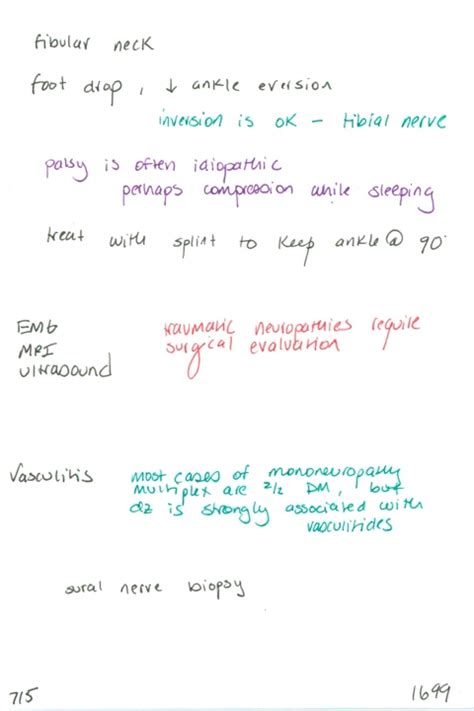 fibular neck
foot drop, ↓ ankle eversion
inversion is ok - tibial nerve
palsy is often idiopathic
perhaps compression while sleeping
treat with splint to keep ankle @ 90°
EMG
MRI
ultrasound
traumatic neuropathies require
surgical evaluation
Vasculitis
most cases of mononeuropathy
multiplex are 2/2 DM, but
dz is strongly associated with
vasculitides
sural nerve biopsy
715
1699